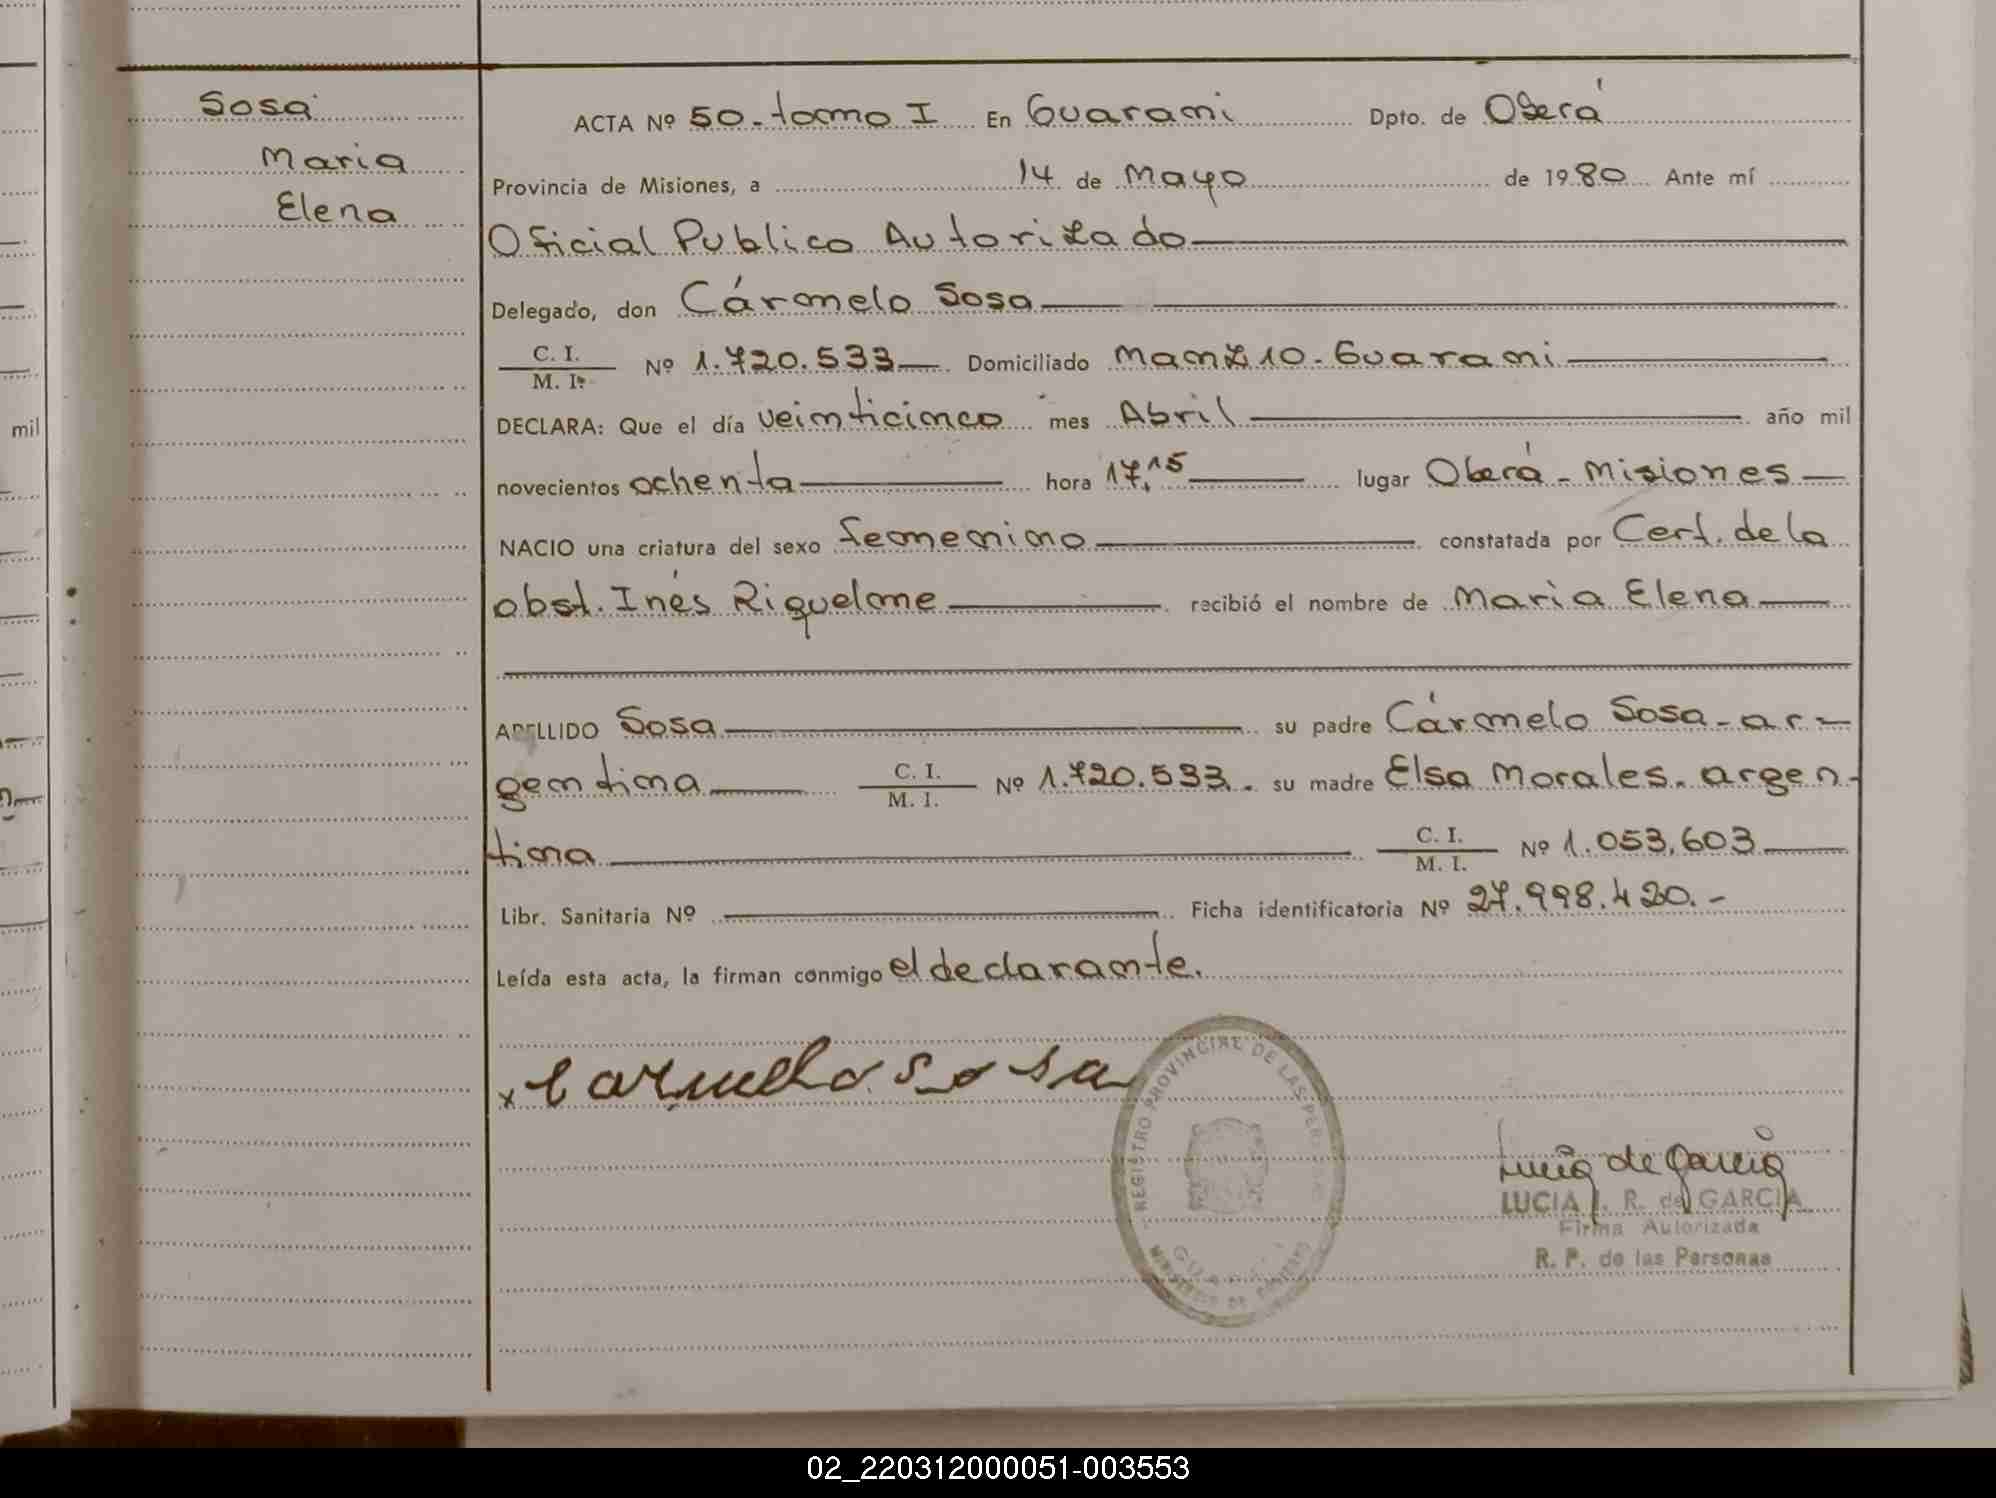 Sosa
Maria
Elena
mil
ACTA Nº 50-tomo I En Guarani Dpto. de Oberá
Provincia de Misiones, a 14 de Mayo de 1980 Ante mí
Oficial Publico Autorizado
Delegado, don Cármelo Sosa
C. I.
M. I. Nº 1.720.533 Domiciliado Manz 10-Guarani
DECLARA: Que el día veinticinco mes Abril año mil
novecientos ochenta hora 17,15 lugar Oberá-Misiones
NACIO una criatura del sexo femenino constatada por Cert. de la
obst. Inés Riquelme recibió el nombre de Maria Elena
APELLIDO Sosa su padre Cármelo Sosa-ar-
gentina C. I.
M. I. Nº 1.720.533. su madre Elsa Morales. argen-
tina C. I.
M. I. Nº 1.053.603
Libr. Sanitaria Nº Ficha identificatoria Nº 27.998.420.-
Leída esta acta, la firman conmigo el declarante.
x Carmelo Sosa
REGISTRO PROVINCIAL DE LAS PERSONAS
MINISTERIO DE GOBIERNO
Lucia de Garcia
LUCIA I. R. de GARCIA
Firma Autorizada
R. P. de las Personas
02_220312000051-003553